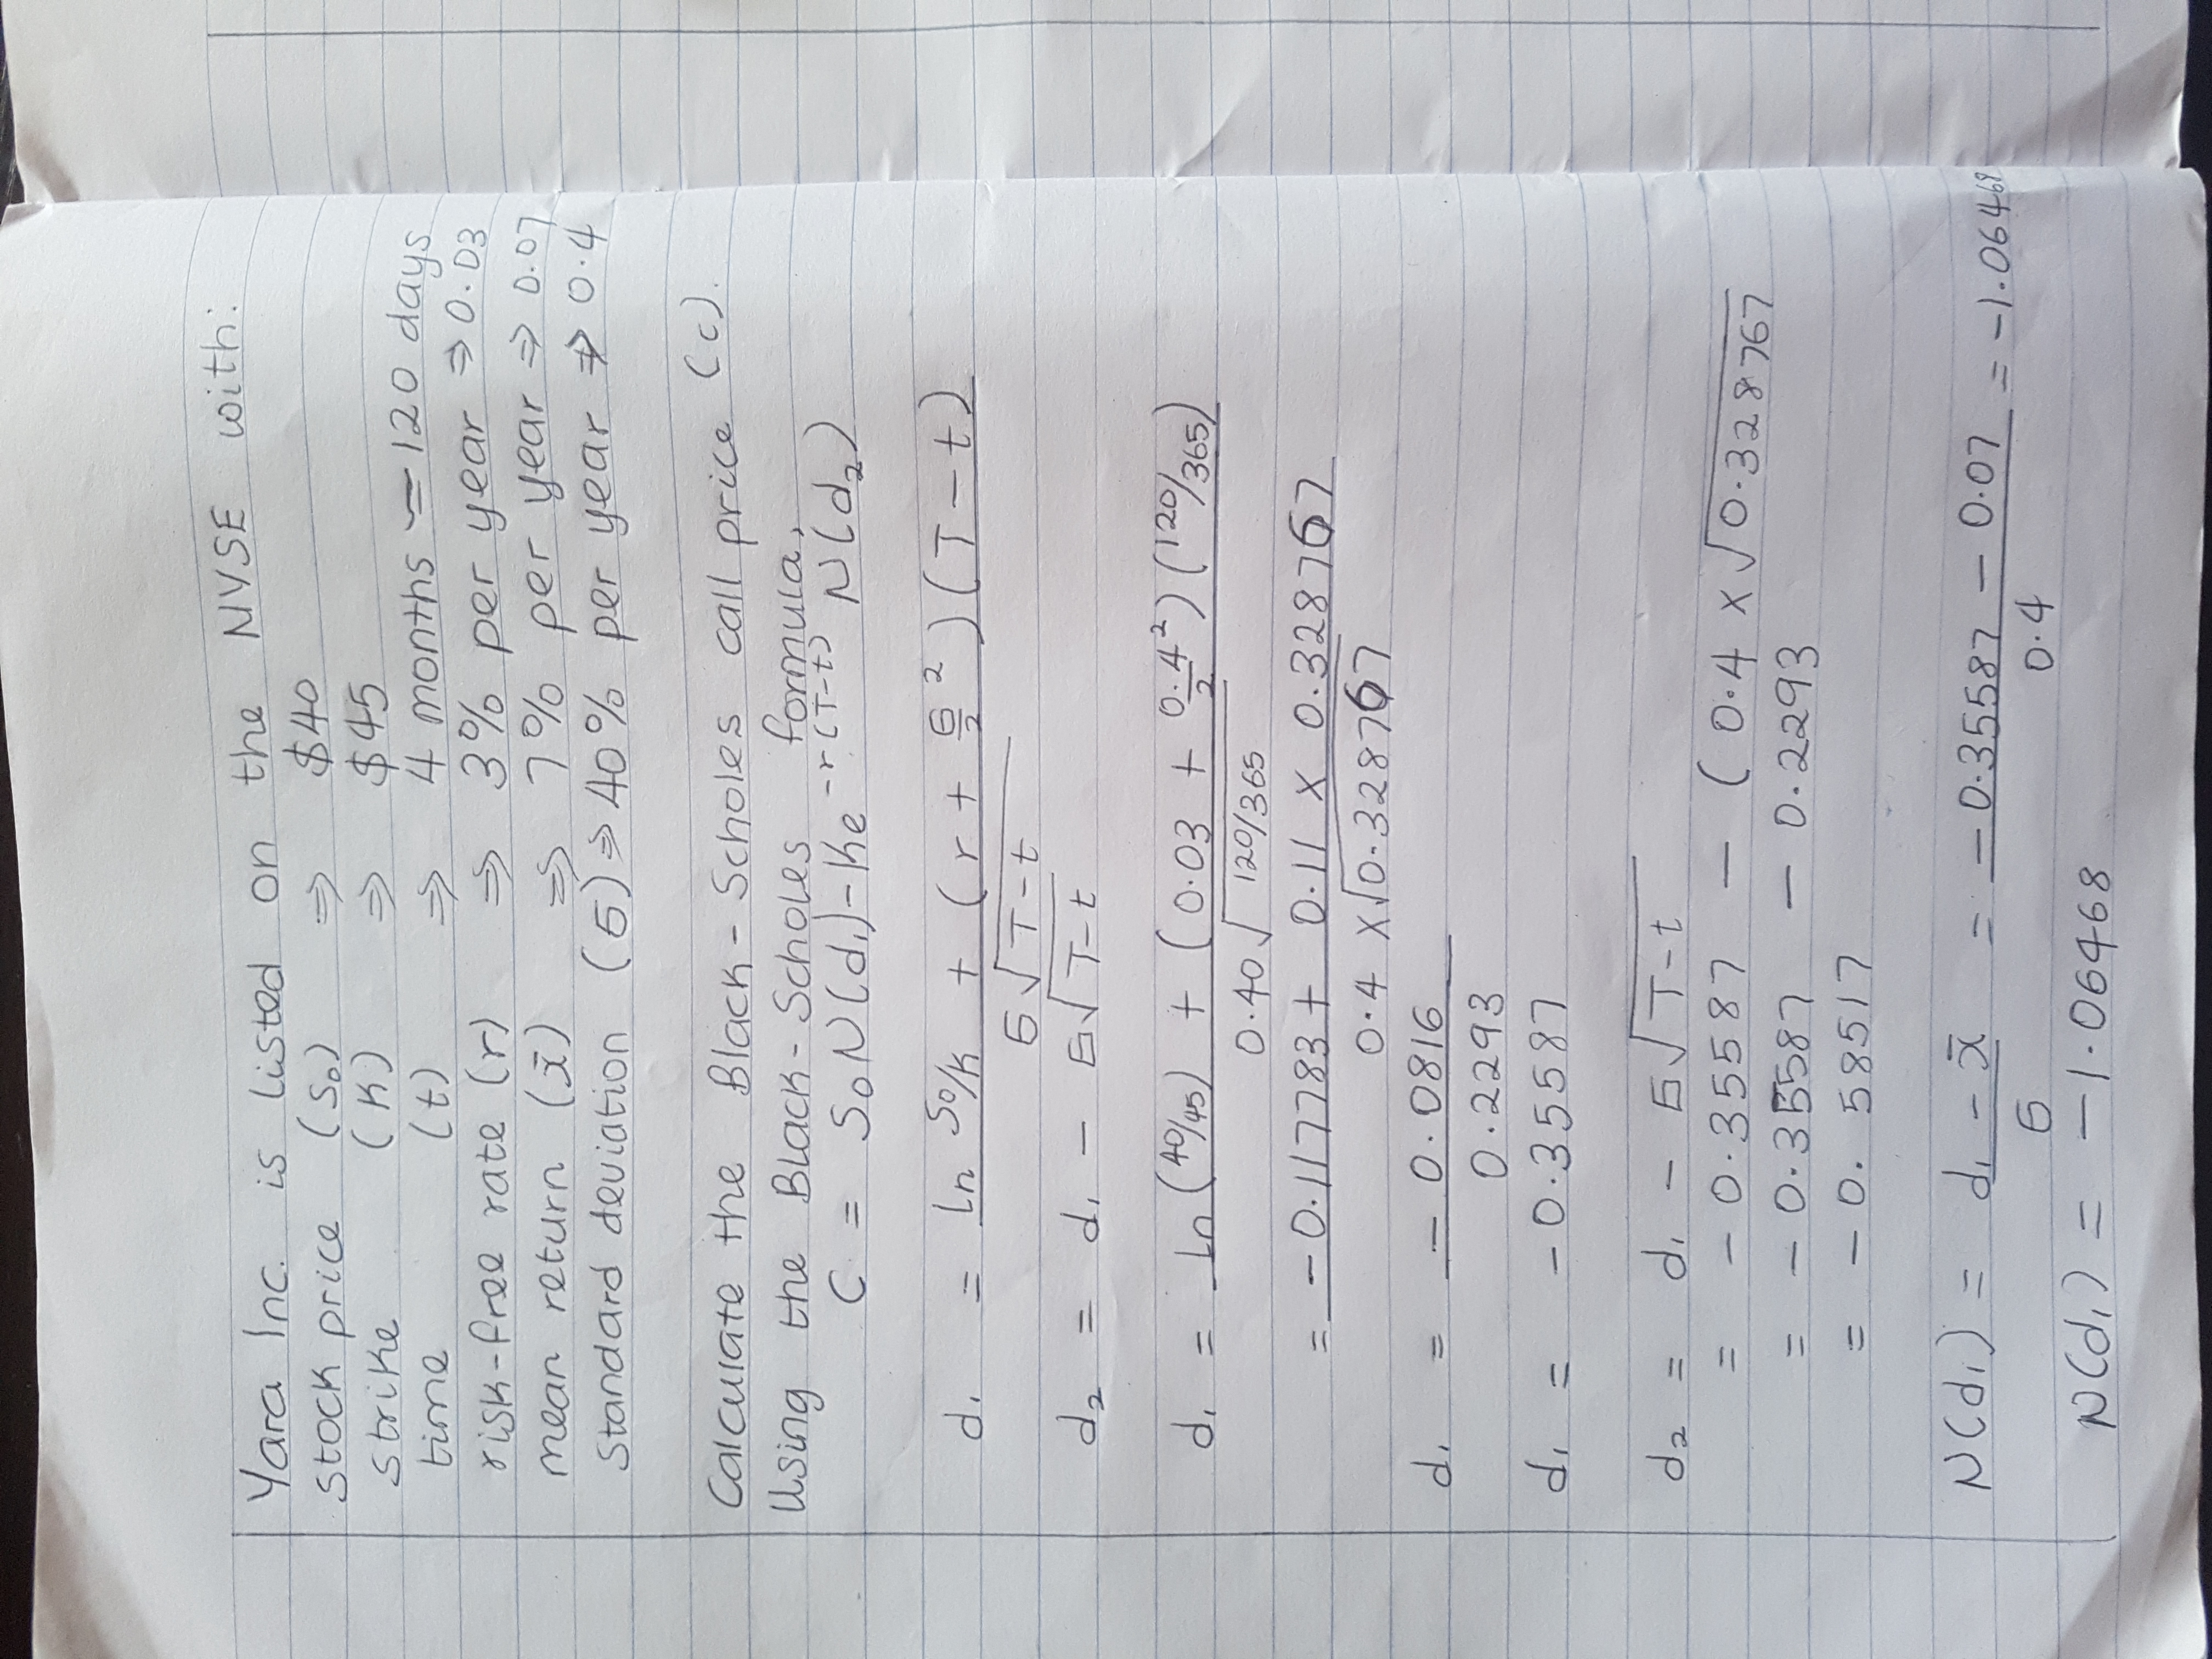 Yara Inc. is listed on the NVSE with:
stock price (S₀) ⇒ $40
strike (K) ⇒ $45
time (t) ⇒ 4 months ≃ 120 days
risk-free rate (r) ⇒ 3% per year ⇒ 0.03
mean return (x̄) ⇒ 7% per year ⇒ 0.07
Standard deviation (б) ⇒ 40% per year ⇒ 0.4
Calculate the Black-Scholes call price (c).
Using the Black-Scholes formula,
C = S₀N(d₁) - Ke^-r(T-t) N(d₂)
d₁ = ln S₀/K + (r + б/2 ²)(T-t)
б√T-t
d₂ = d₁ - б√T-t
d₁ = ln(40/45) + (0.03 + 0.4²/2)(120/365)
0.40√120/365
= -0.117783 + 0.11 x 0.328767
0.4 x√0.328767
d₁ = - 0.0816
0.2293
d₁ = -0.35587
d₂ = d₁ - б√T-t
= -0.35587 - (0.4 x √0.328767
= -0.35587 - 0.2293
= -0.58517
N(d₁) = d₁ - x̄ = -0.35587 - 0.07 = -1.06468
б 0.4
N(d₁) = -1.06468